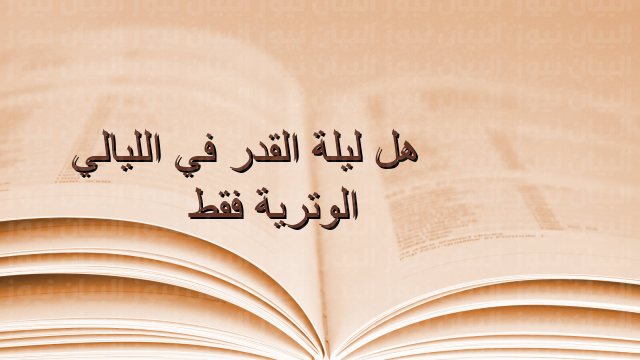 هل ليلة القدر في الليالي
الوترية فقط